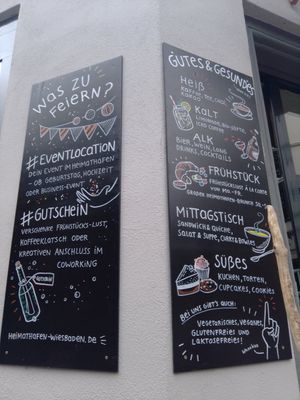 WAS ZU
FEIERN?
#EVENTLOCATION
DEIN EVENT IM HEIMATHAFEN
- OB GEBURTSTAG, HOCHZEIT
ODER BUSINESS-EVENT
#GUTSCHEIN
VERSCHENKE FRÜHSTÜCKS-LUST,
KAFFEEKLATSCH ODER
KREATIVEN ANSCHLUSS IM
COWORKING
HEIMATHAFEN-WIESBADEN.DE
GUTES & GESUNDES
HEIß
KAFFEE, TEE, CHAI,
KAKAO
KALT
LIMONADE, BIO-SÄFTE,
ICED COFFEE
ALK
BIER, WEIN, LONG
DRINKS, COCKTAILS
FRÜHSTÜCK
FRÜHSTÜCKSLUST À LA CARTE
VON MO.-SO.
MITTAGSTISCH
SANDWICH & QUICHE,
SALAT & SUPPE, CURRY & BOWLES
SÜßES
KUCHEN, TORTEN,
CUPCAKES, COOKIES
BEI UNS GIBT'S AUCH:
VEGETARISCHES, VEGANES,
GLUTENFREIES UND
LAKTOSEFREIES!